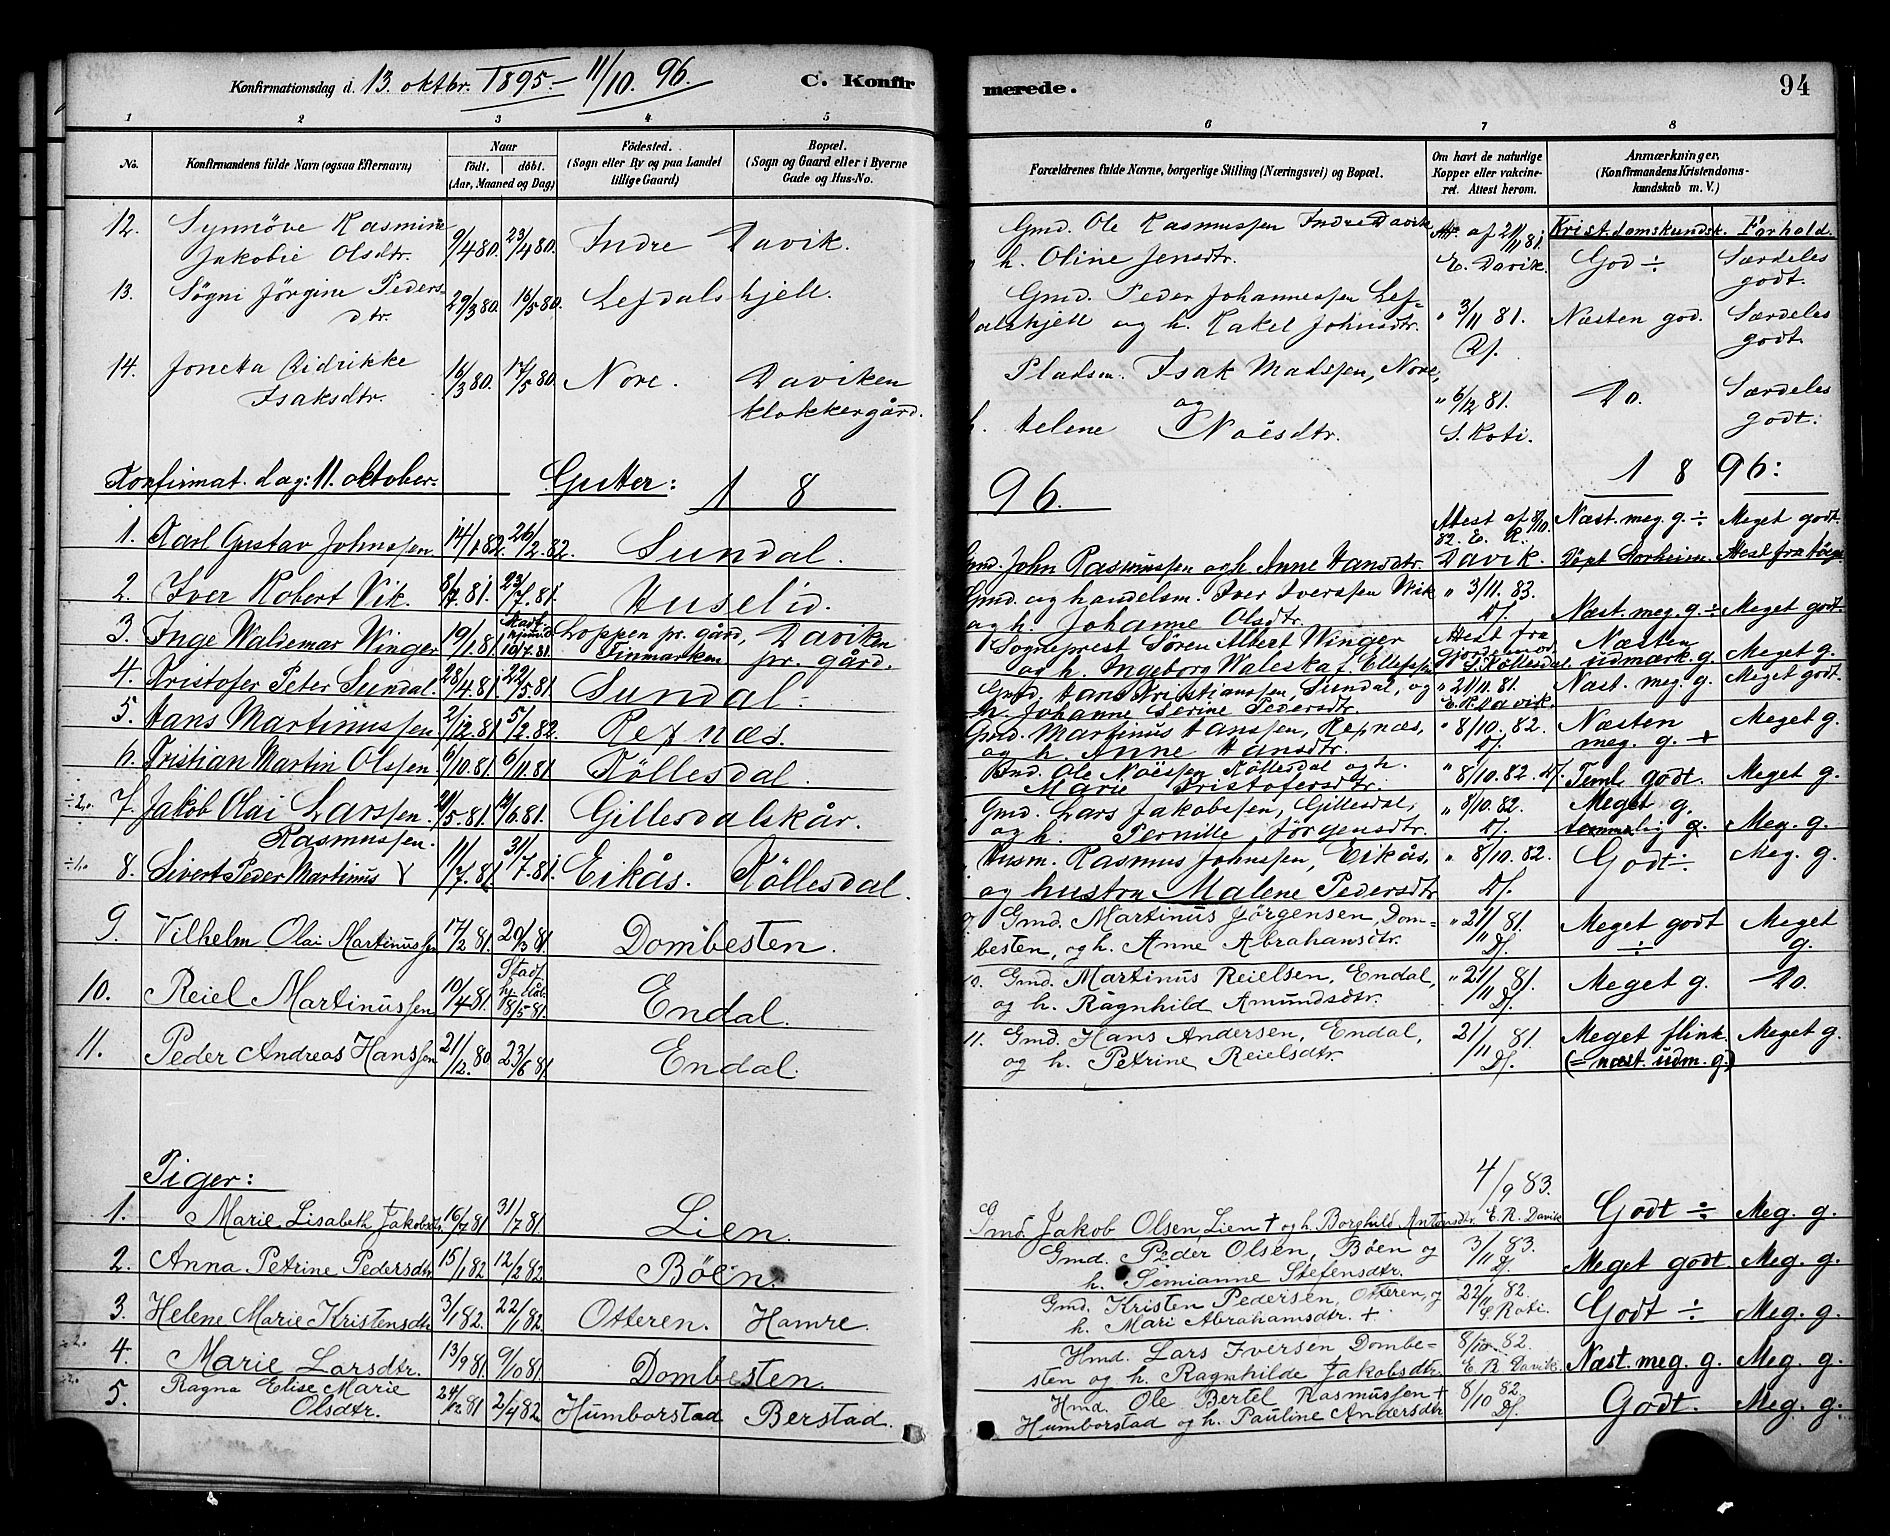 Konfirmationsdag d. 13. oktbr. 1895 – 11/10. 96. C. Konfirmerede. 94
1 2 3 4 5 6 7 8
No. Konfirmandens fulde Navn (ogsaa Efternavn) Naar födt. döbt. (Aar, Maaned og Dag) Födested. (Sogn eller By og paa Landet tillige Gaard) Bopæl. (Sogn og Gaard eller i Byerne Gade og Hus-No. Forældrenes fulde Navne, borgerlige Stilling (Næringsvei) og Bopæl. Om havt de naturlige Kopper eller vakcineret. Attest herom. Anmærkninger. (Konfirmandens Kristendomskundskab m. V.)
Krist.domskundsk. Forhold.
12. Synnöve Rasmine Jakobie Olsdtr. 9/4 80. 23/4 80. Indre Davik. Gmd. Ole Rasmussen Indre Davik, h. Oline Jensdtr. Att. af 21/11 81. E. Davik. God ÷ Særdeles godt.
13. Søgni Jörgine Pedersdtr. 29/3 80. 16/5 80. Lefdalshjell. Gmd. Peder Johannessen Lefdalshjell og h. Rakel Johnsdtr. " 3/11 81. Ds. Næsten god. Særdeles godt.
14. Joneta Didrikke Isaksdtr. 16/3 80. 17/5 80. Nore. Daviken klokkergård. Pladsm. Isak Madssen, Nore, og h. Helene Noësdtr. " 6/12 81. S. Roti. Do. Særdeles godt.
Konfirmat. dag: 11. oktober. Gutter: 1896. 1896:
1. Karl Gustav Johnssen 14/1 82. 26/2. 82. Sundal. Gmd. John Rasmussen og h. Anne Hansdtr. Attest af 8/10 82. E. R. Davik. Næst. meg. g. ÷ Meget godt.
2. Iver Robert Vik. 8/7. 81. 23/7. 81. Huselid. Gmd. og handelsm. Iver Iverssen Wik og h. Johanne Olsdtr. " 3/11. 83. Ds. Næst. meg. g. ÷ Meget godt.
3. Inge Waldemar Winger 19/1. 81. 10/7. 81. Loppen pr. gård, Finmarken Daviken pr. gård. Sogneprest Sören Albert Winger og h. Ingeborg Waleska f. Ellefsen Attest fra Næsten udmærk. g. Meget g.
4. Kristofer Peter Sundal. 28/4. 81. 22/5. 81. Sundal. Gmd. Hans Kristianssen, Sundal, og h. Johanne Serine Pedersdtr. " 21/11. 81. E. R. Davik. Næst. meg. g. Meget godt.
5. Hans Martinussen 2/12. 81. 5/2. 82. Refnæs. Gmd. Martinus Hanssen, Refnæs, og h. Anne Hansdtr. " 8/10. 82. Ds. Næsten meg. g. + Meget g.
6. Kristian Martin Olssen 9/10. 81. 6/11. 81 Köllesdal. Gmd. Ole Noëssen Köllesdal og h. Marie Kristofersdtr. " 8/10. 82. Ds. Teml. godt. Meget g.
÷2. 7. Jakob Olai Larssen. 21/5. 81. 12/6. 81. Gillesdalskår. Gmd. Lars Jakobssen, Gillesdal, og h. Pernille Jörgensdtr. " 8/10. 82. Ds. Meget g. temmelig g. Meg. g.
÷1. 8. Sivert Peder Martinus Rasmussen. 11/7. 81. 31/7. 81. Eikås. Köllesdal. Husm. Rasmus Johnssen, Eikås, og hustru Malene Pedersdtr. " 8/10. 82. Ds. Godt ÷ Meg. g.
9. Vilhelm Olai Martinussen 17/2 81. 20/3 81. Dombesten. 9. Gmd. Martinus Jörgensen, Dombesten, og h. Anne Abrahamsdtr. " 21/11 81. Ds. Meget godt ÷ Meget g.
10. Reiel Martinussen 10/4 81. 8/5 81. Endal. 10. Gmd. Martinus Reielsen, Endal, og h. Ragnhild Amundsdtr. " 21/11 81. Ds. Meget g. Do.
11. Peder Andreas Hanssen 21/12. 80 23/6 81 Endal. 11. Gmd. Hans Andersen, Endal, og h. Petrine Reielsdtr. 21/11 81. Ds. Meget flink. (= næst. udm. g.) Meget g.
Piger:
1. Marie Lisabeth Jakobsdtr. 16/7 81 31/7 81. Lien. Gmd. Jakob Olsen, Lien † og h. Borghild Antonsdtr. 4/9 83. E. R. Davik Godt ÷ Meg. g.
2. Anna Petrine Pedersdtr 15/1 82 12/2 82 Böen. Gmd. Peder Olsen, Böen og h. Simianne Stefensdtr. 3/11 83. Ds. Meget godt. Meg. g.
3. Helene Marie Kristensdtr 3/1 82. 22/1 82. Otteren. Hamre. Gmd. Kristen Pedersen, Otteren, og h. Mari Abrahamsdtr. + 22/11 82. S. Roti. Godt ÷ Meg. g.
÷2. 4. Marie Larsdtr. 13/9 81. 9/10 81. Dombesten. Hmd. Lars Iversen Dombesten og h. Ragnhilde Jakobsdtr. 8/10. 82. E. R. Davik. Næst. meg. g. Meg. g.
5. Ragna Elise Marie Olsdtr. 24/12 81 2/4 82 Humborstad Berstad. Hmd. Ole Bertel Rasmussen + Humborstad og h. Pauline Andersdtr 8/10 82. Ds. Godt. Meg. g.